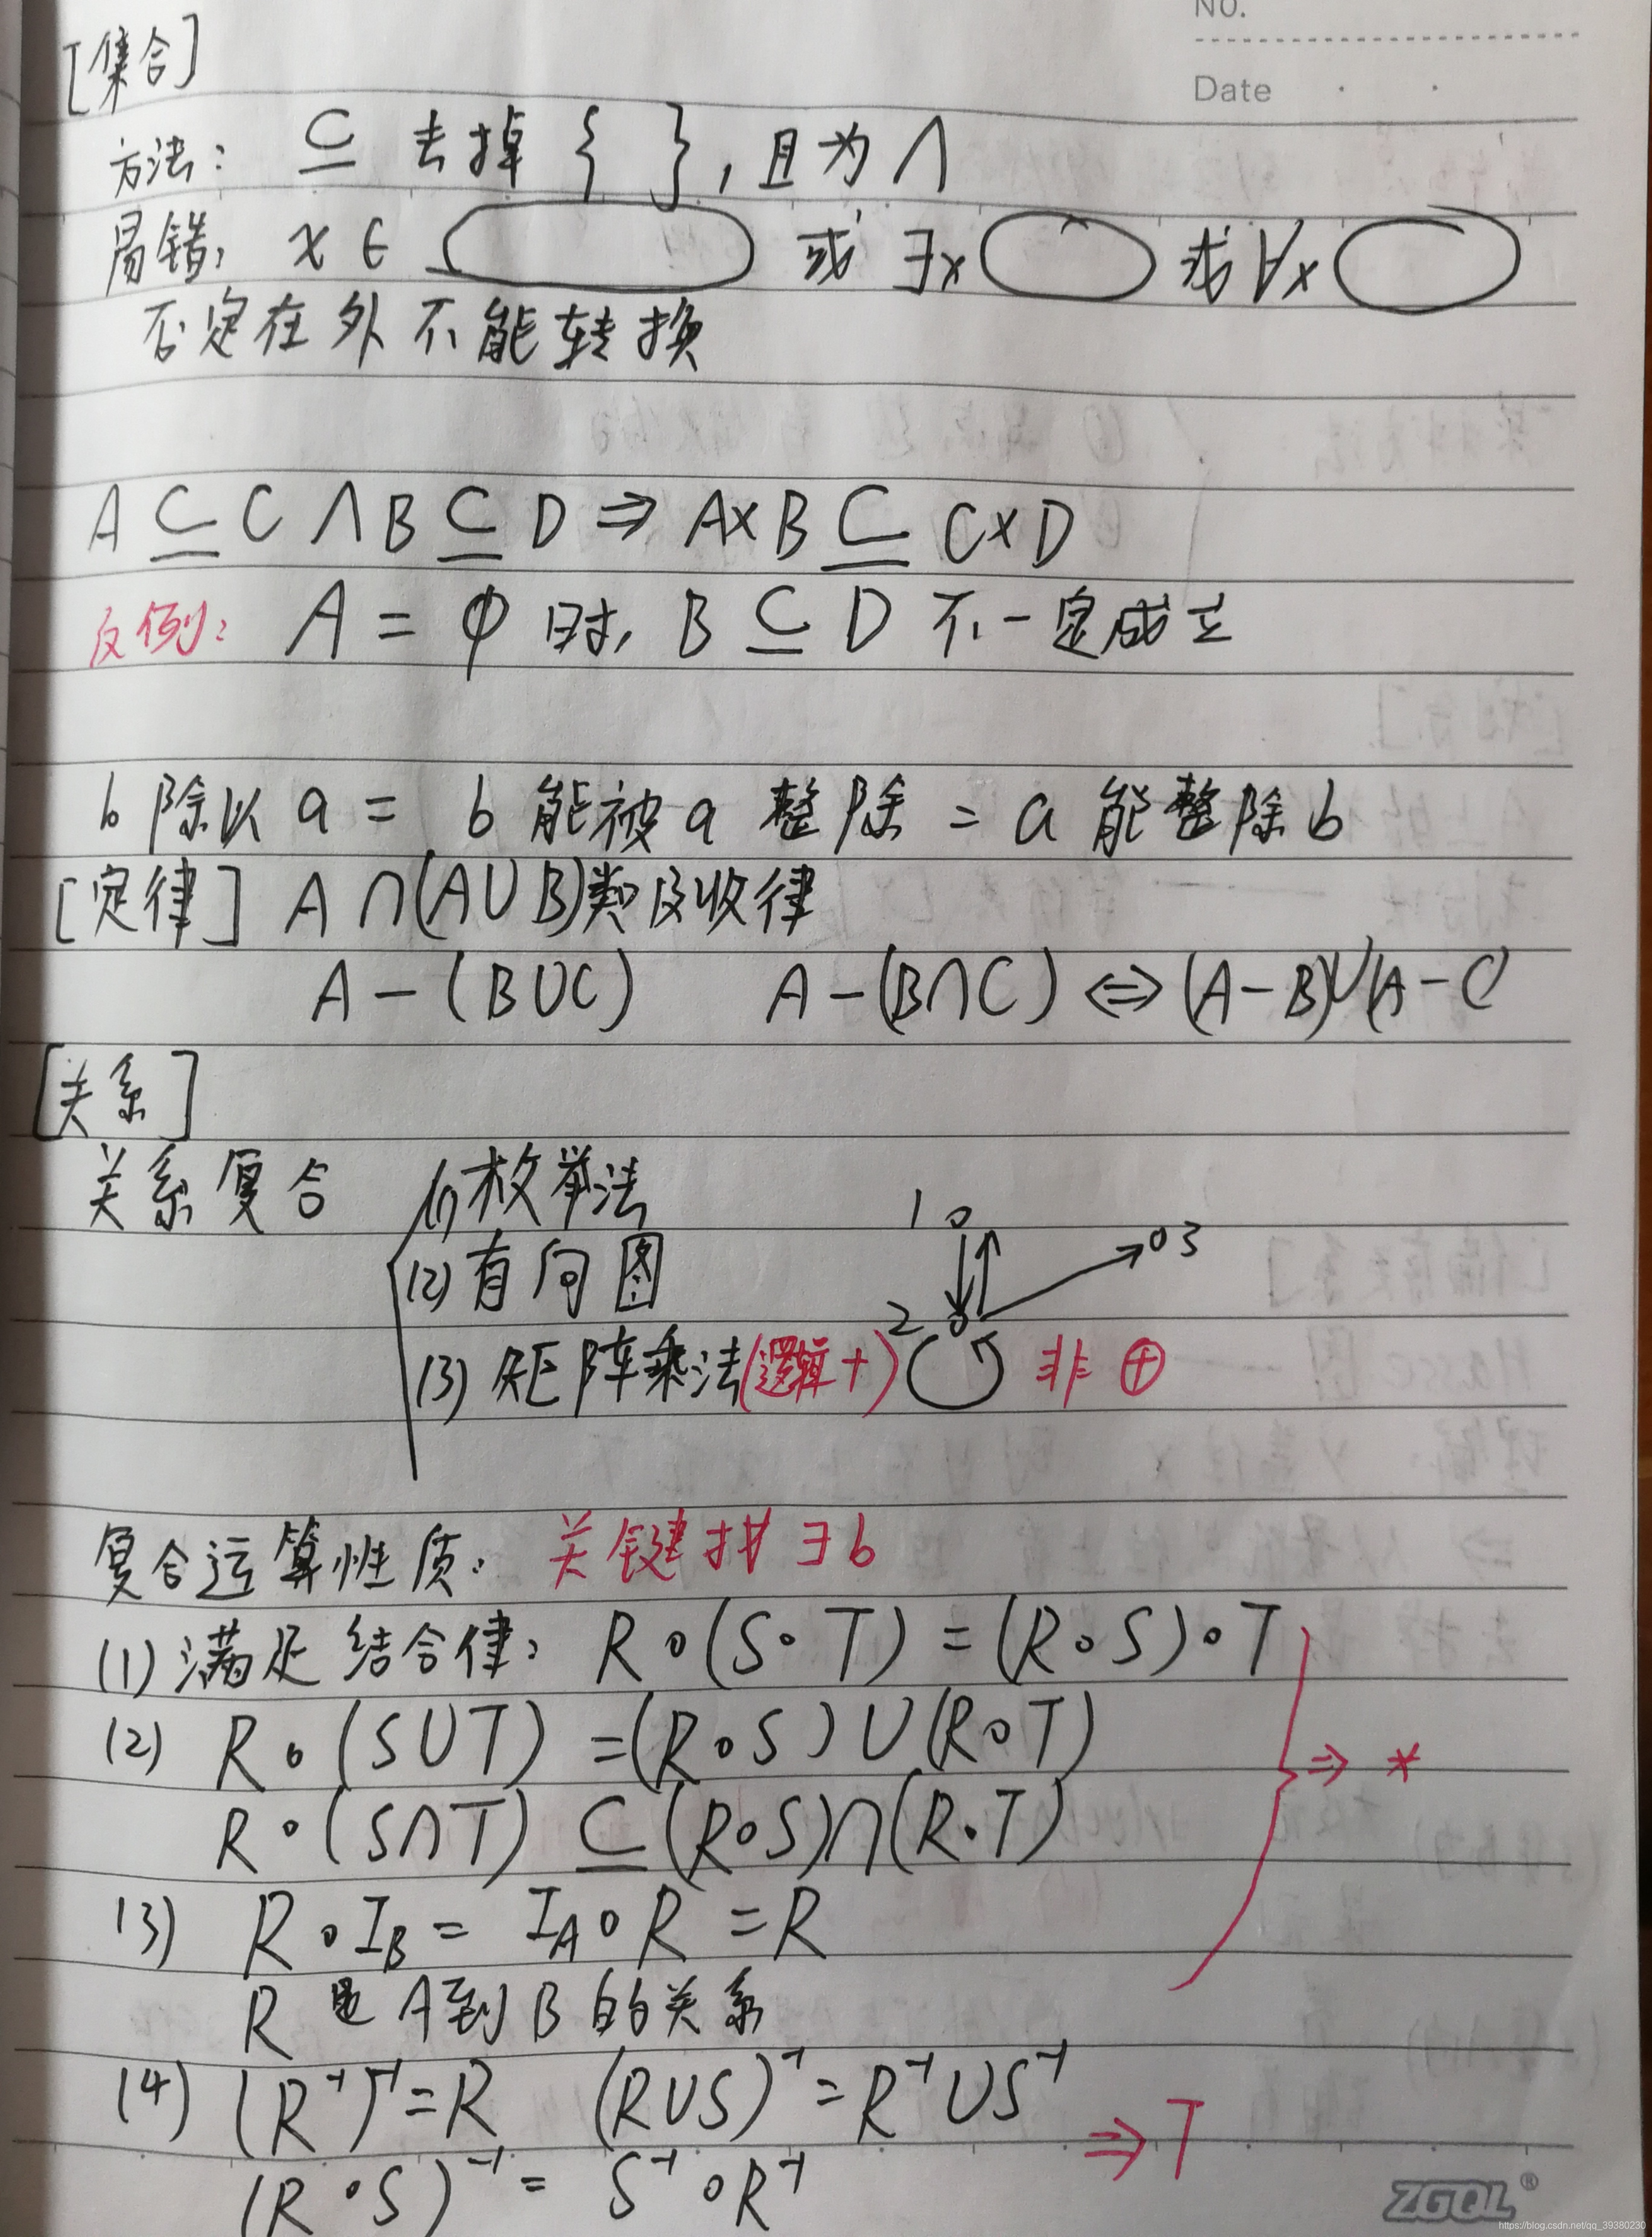 NO.
Date
[集合]
方法: ⊆ 去掉 { }, 且为∧
易错: x ∈ 或 ∃x 或 ∀x
否定在外不能转换
A ⊆ C ∧ B ⊆ D ⇒ A×B ⊆ C×D
反例: A = φ 时, B ⊆ D 不一定成立
b 除以 a = b 能被 a 整除 = a 能整除 b
[定律] A ∩(A∪B)类吸收律
A-(B∪C) A-(B∩C) ⇔ (A-B)∪(A-C
[关系]
关系复合 (1)枚举法
(2)有向图
(3)矩阵乘法(逻辑+) 非 ⊕
1 2 3
复合运算性质: 关键找 ∃b
(1)满足结合律: R∘(S∘T) = (R∘S)∘T
(2) R∘(S∪T) =(R∘S)∪(R∘T)
R∘(S∩T) ⊆ (R∘S)∩(R∘T)
⇒ *
(3) R∘I_B = I_A∘R = R
R 是 A到B的关系
(4) (R⁻¹)⁻¹=R (R∪S)⁻¹=R⁻¹∪S⁻¹
⇒ T
(R∘S)⁻¹ = S⁻¹∘R⁻¹
ZGQL®
https://blog.csdn.net/qq_39380230